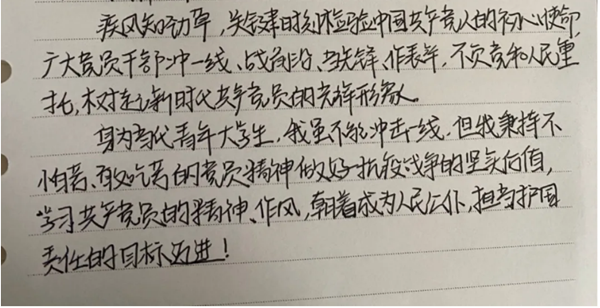 疾风知劲草，关键时刻检验中国共产党人的初心使命，
广大党员干部冲一线、战前沿、当先锋、作表率，不负党和人民重
托，树立新时代共产党员的光辉形象。
身为当代青年大学生，我虽不能冲击一线，但我秉持不
怕苦、敢吃苦的党员精神做好抗疫战争的坚实后盾，
学习共产党员的精神、作风，朝着成为人民公仆，担当护国
责任的目标迈进！